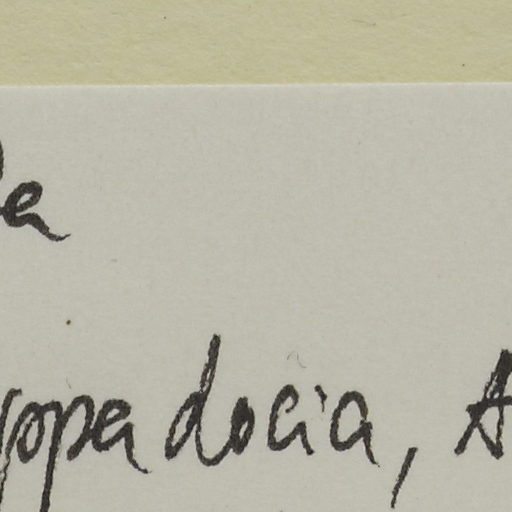 ppadocia, A